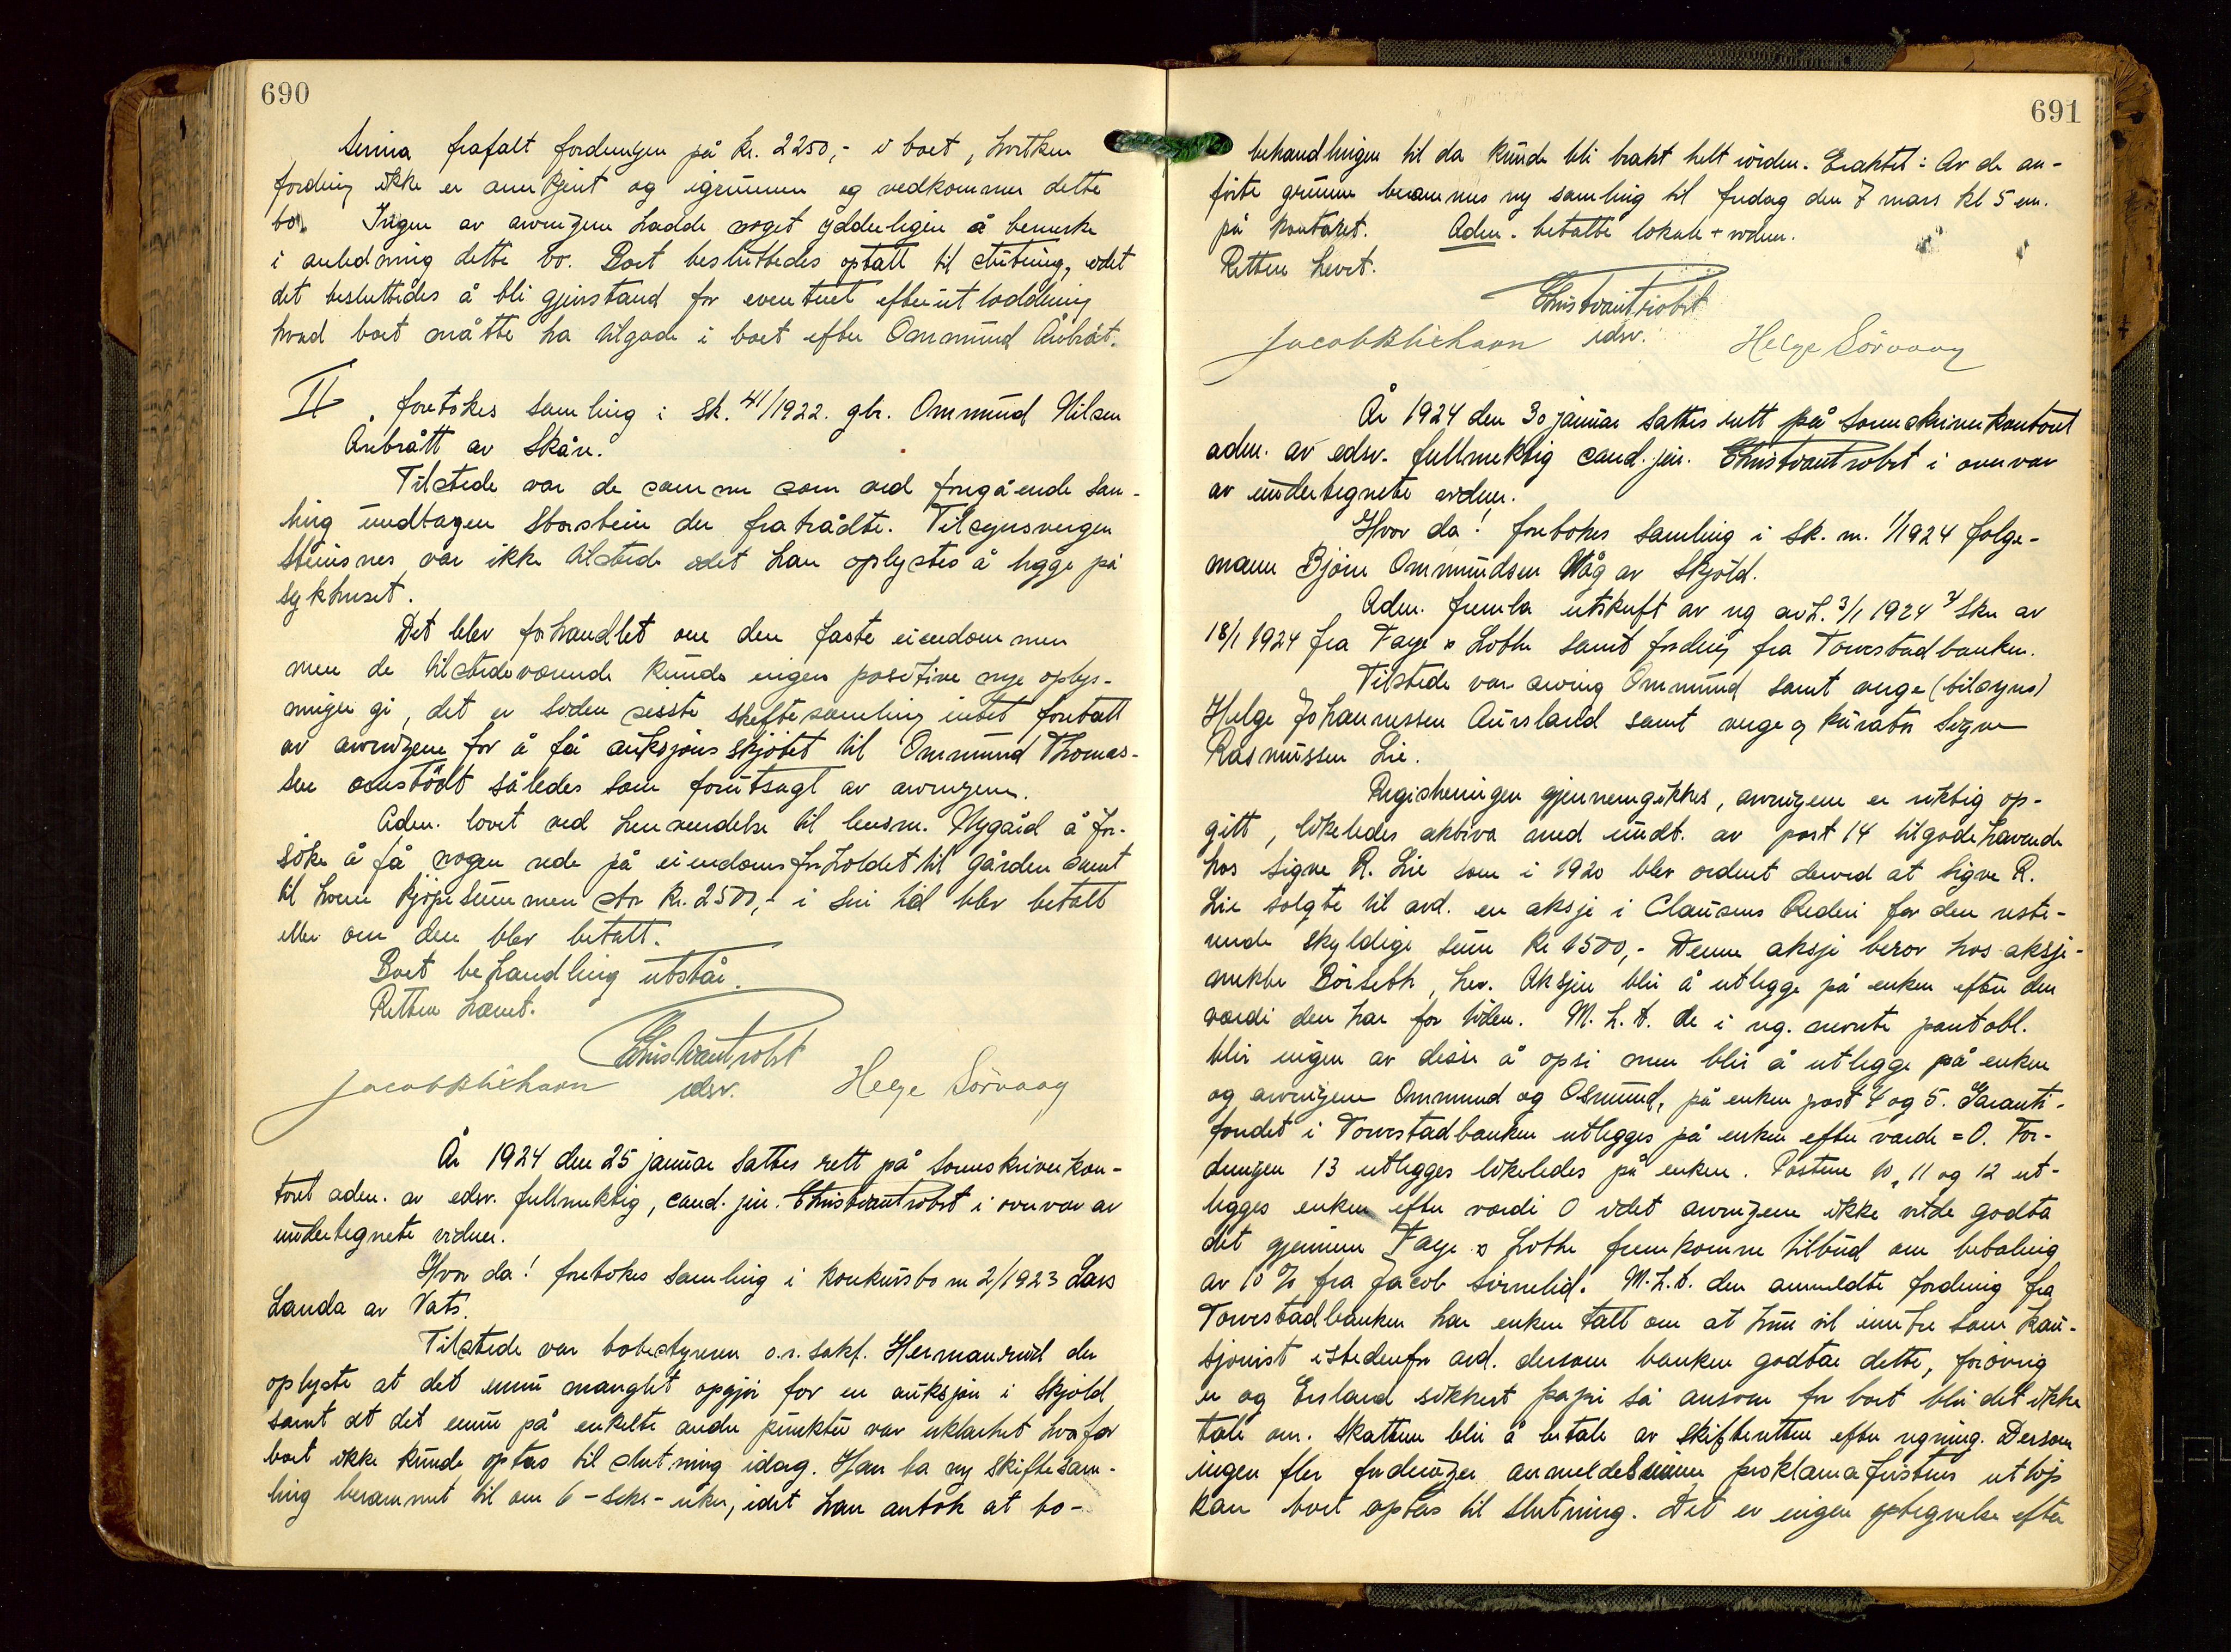 690
Serina frafalt fordringen på kr. 2250,- i boet, hvilken
fordring ikke er anerkjent og igrunnen og vedkommer dette
bo. Ingen av arvingene hadde noget ydderligere å bemerke
i anledning dette bo. Boet besluttedes optatt til slutning, idet
det besluttedes å bli gjenstand for eventuel efterutloddning
hvad boet måtte ha tilgode i boet efter Ommund Årbråt.
II. foretokes samling i Sk. 41/1922. gbr. Ommund Nilsen
Årbrått av Skåre.
Tilstede var de samme som ved foregående sam-
ling undtagen Storstein der fratrådte. Tilsynsvergen
Steinsnes var ikke tilstede idet han oplystes å ligge på
sykhuset.
Det blev forhandlet om den faste eiendom men
men de tilstedeværende kunde ingen positive nye oplys-
ninger gi, det er siden sisste skiftesamling intet foretatt
av arvingene for å få auksjonsskjøtet til Ommund Thomas-
sen omstödt således som forutsagt av arvingene.
Adm. lovet ved henvendelse til lensm. Nygård å for-
söke å få nogen rede på eiendomsforholdet til gården samt
til hvem kjöpesummen stor kr. 2500,- i sin tid blev betalt
eller om den blev betalt.
Boet behandling utstår.
Retten hevet.
edsv.
Helge Sörvaag
År 1924 den 25 januar sattes rett på sorenskriverkon-
toret adm. av edsv. fullmektig, cand. jur. i overvær av
undertegnete vidner.
Hvor da! foretokes samling i konkursbo nr 2/1923 Lars
Landa av Vats.
Tilstede var bobestyreren o.r. sakf. Hermanrud der
oplyste at det ennu manglet opgjör for en auksjon i Skjold
samt at det ennu på enkelte andre punkter var uklarhet hvorfor
boet ikke kunde optas til slutning idag. Han ba ny skiftesam-
ling berammet til om 6 - seks - uker, idet han antok at bo-
691
behandlingen til da kunde bli brakt helt iorden. Eraktet: Av de an-
förte grunne berammes ny samling til fredag den 7 mars kl 5 em.
på kontoret. Adm. betalte lokale + vidner.
Retten hevet.
edsv.
Helge Sörvaag
År 1924 den 30 januar sattes rett på sorenskriverkontoret
adm. av edsv. fullmektig cand. jur. i overvær
av undertegnete vidner.
Hvor da! foretokes samling i Sk. nr. 1/1924 følge-
mann Bjørn Ommundsen Våg av Skjold.
Adm. fremla utskrift av reg avh. 3/1 1924 Skr av
18/1 1924 fra Faye & Lothe samt fordring fra Torvestadbanken.
Tilstede var arving Ommund samt verge (tilsyns)
Helge Johannessen Aursland samt verge og kurator Signe
Rasmussen Lie.
Registreringen gjennemgikkes, arvingene er riktig op-
gitt, likeledes aktiva med undt. av post 14 tilgodehavende
hos Signe R. Lie som i 1920 blev ordnet derved at Signe R.
Lie solgte til avd. en aksje i Clausens Rederi for den reste-
rende skyldige sum kr 1500,- Denne aksje beror hos aksje-
mekler, her. Aksjen blir å utlegge på enken efter den
verdi den har for tiden. M. h. t. de i reg. nevnte pantobl.
blir ingen av disse å opsi men blir å utlegge på enken
og arvingene Ommund og Osmund, på enken post 4 og 5. Garanti-
fondet i Torvestadbanken utlegges på enken efter værdi = 0. For-
dringen 13 utlegges likeledes på enken. Postene 10, 11 og 12 ut-
legges enken efter verdi 0 idet arvingene ikke vilde godta
det gjennem Faye & Lothe fremkomne tilbud om betaling
av 10 % fra Jacob. M.h.t. den anmeldte fordring fra
Torvestadbanken har enken talt om at hun vil inntre som kau-
sjonist istedenfor avd. dersom banken godtar dette, forövrig
er og Ersland sikkert papir så ansvar for boet blir det ikke
tale om. Skattene blir å betale av skifteretten efter regning. Dersom
ingen fler fordringer anmeldes innen proklamafristens utlöp
kan boet optas til slutning. Det er ingen optegnelse efter